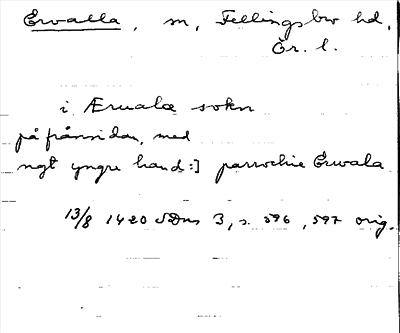 Ervalla, sn, Fellingsbro hd,
Ör. l.
i Ærualæ sokn
på frånsidan, med
ngt yngre hand:] parrochie Erwala
13/8 1420 SDns 3, s. 596, 597 orig.